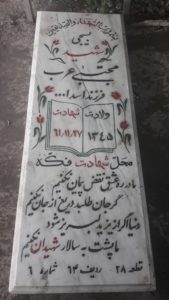 بسم رب الشهداء والصدیقین
بسیجی
شهید
مجتبی عرب
فرزند اسدا...
ولادت شهادت
۱۳۴۵ ۶۱/۱۱/۲۷
محل شهادت فکه
ما در ره عشق نقض پیمان نکنیم
گر جان طلبد دریغ از جان نکنیم
دنیا اگر از یزید لبریز شود
ما پشت به سالار شهیدان نکنیم
قطعه ۲۸ ردیف ۶۳ شماره ۶